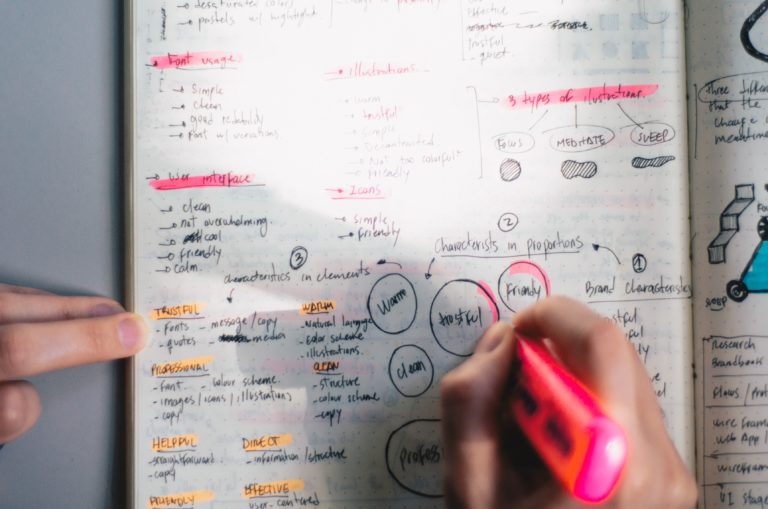 desaturated colors
pastels w/ highlight
Effective
trustful
quiet
Font usage
Simple
clean
good readability
font w/ variations
illustrations
warm
trustful
simple
Deconstructed
Not too colorful
Friendly
3 types of ilustrations
FOCUS
MEDITATE
SLEEP
User interface
clean
not overwhelming
cool
friendly
calm
Icons
simple
friendly
3
characteristics in elements
2
Characterists in proportions
1
Brand Characteristics
Warm
trustful
friendly
clean
TRUSTFUL
- Fonts - message/copy
- quotes - media
WARM
- Natural language
- color scheme
- illustrations
PROFESSIONAL
- Font - colour scheme
- images/icons/illustrations
- copy
CLEAN
- structure
- colour scheme
- copy
HELPFUL
- straightforward
- copy
DIRECT
- information/structure
FRIENDLY
EFFECTIVE
user-centered
Three
that the
change
SLEEP
Research
Brandbook
Flows /
wire frame
web App /
wireframe
UI stage